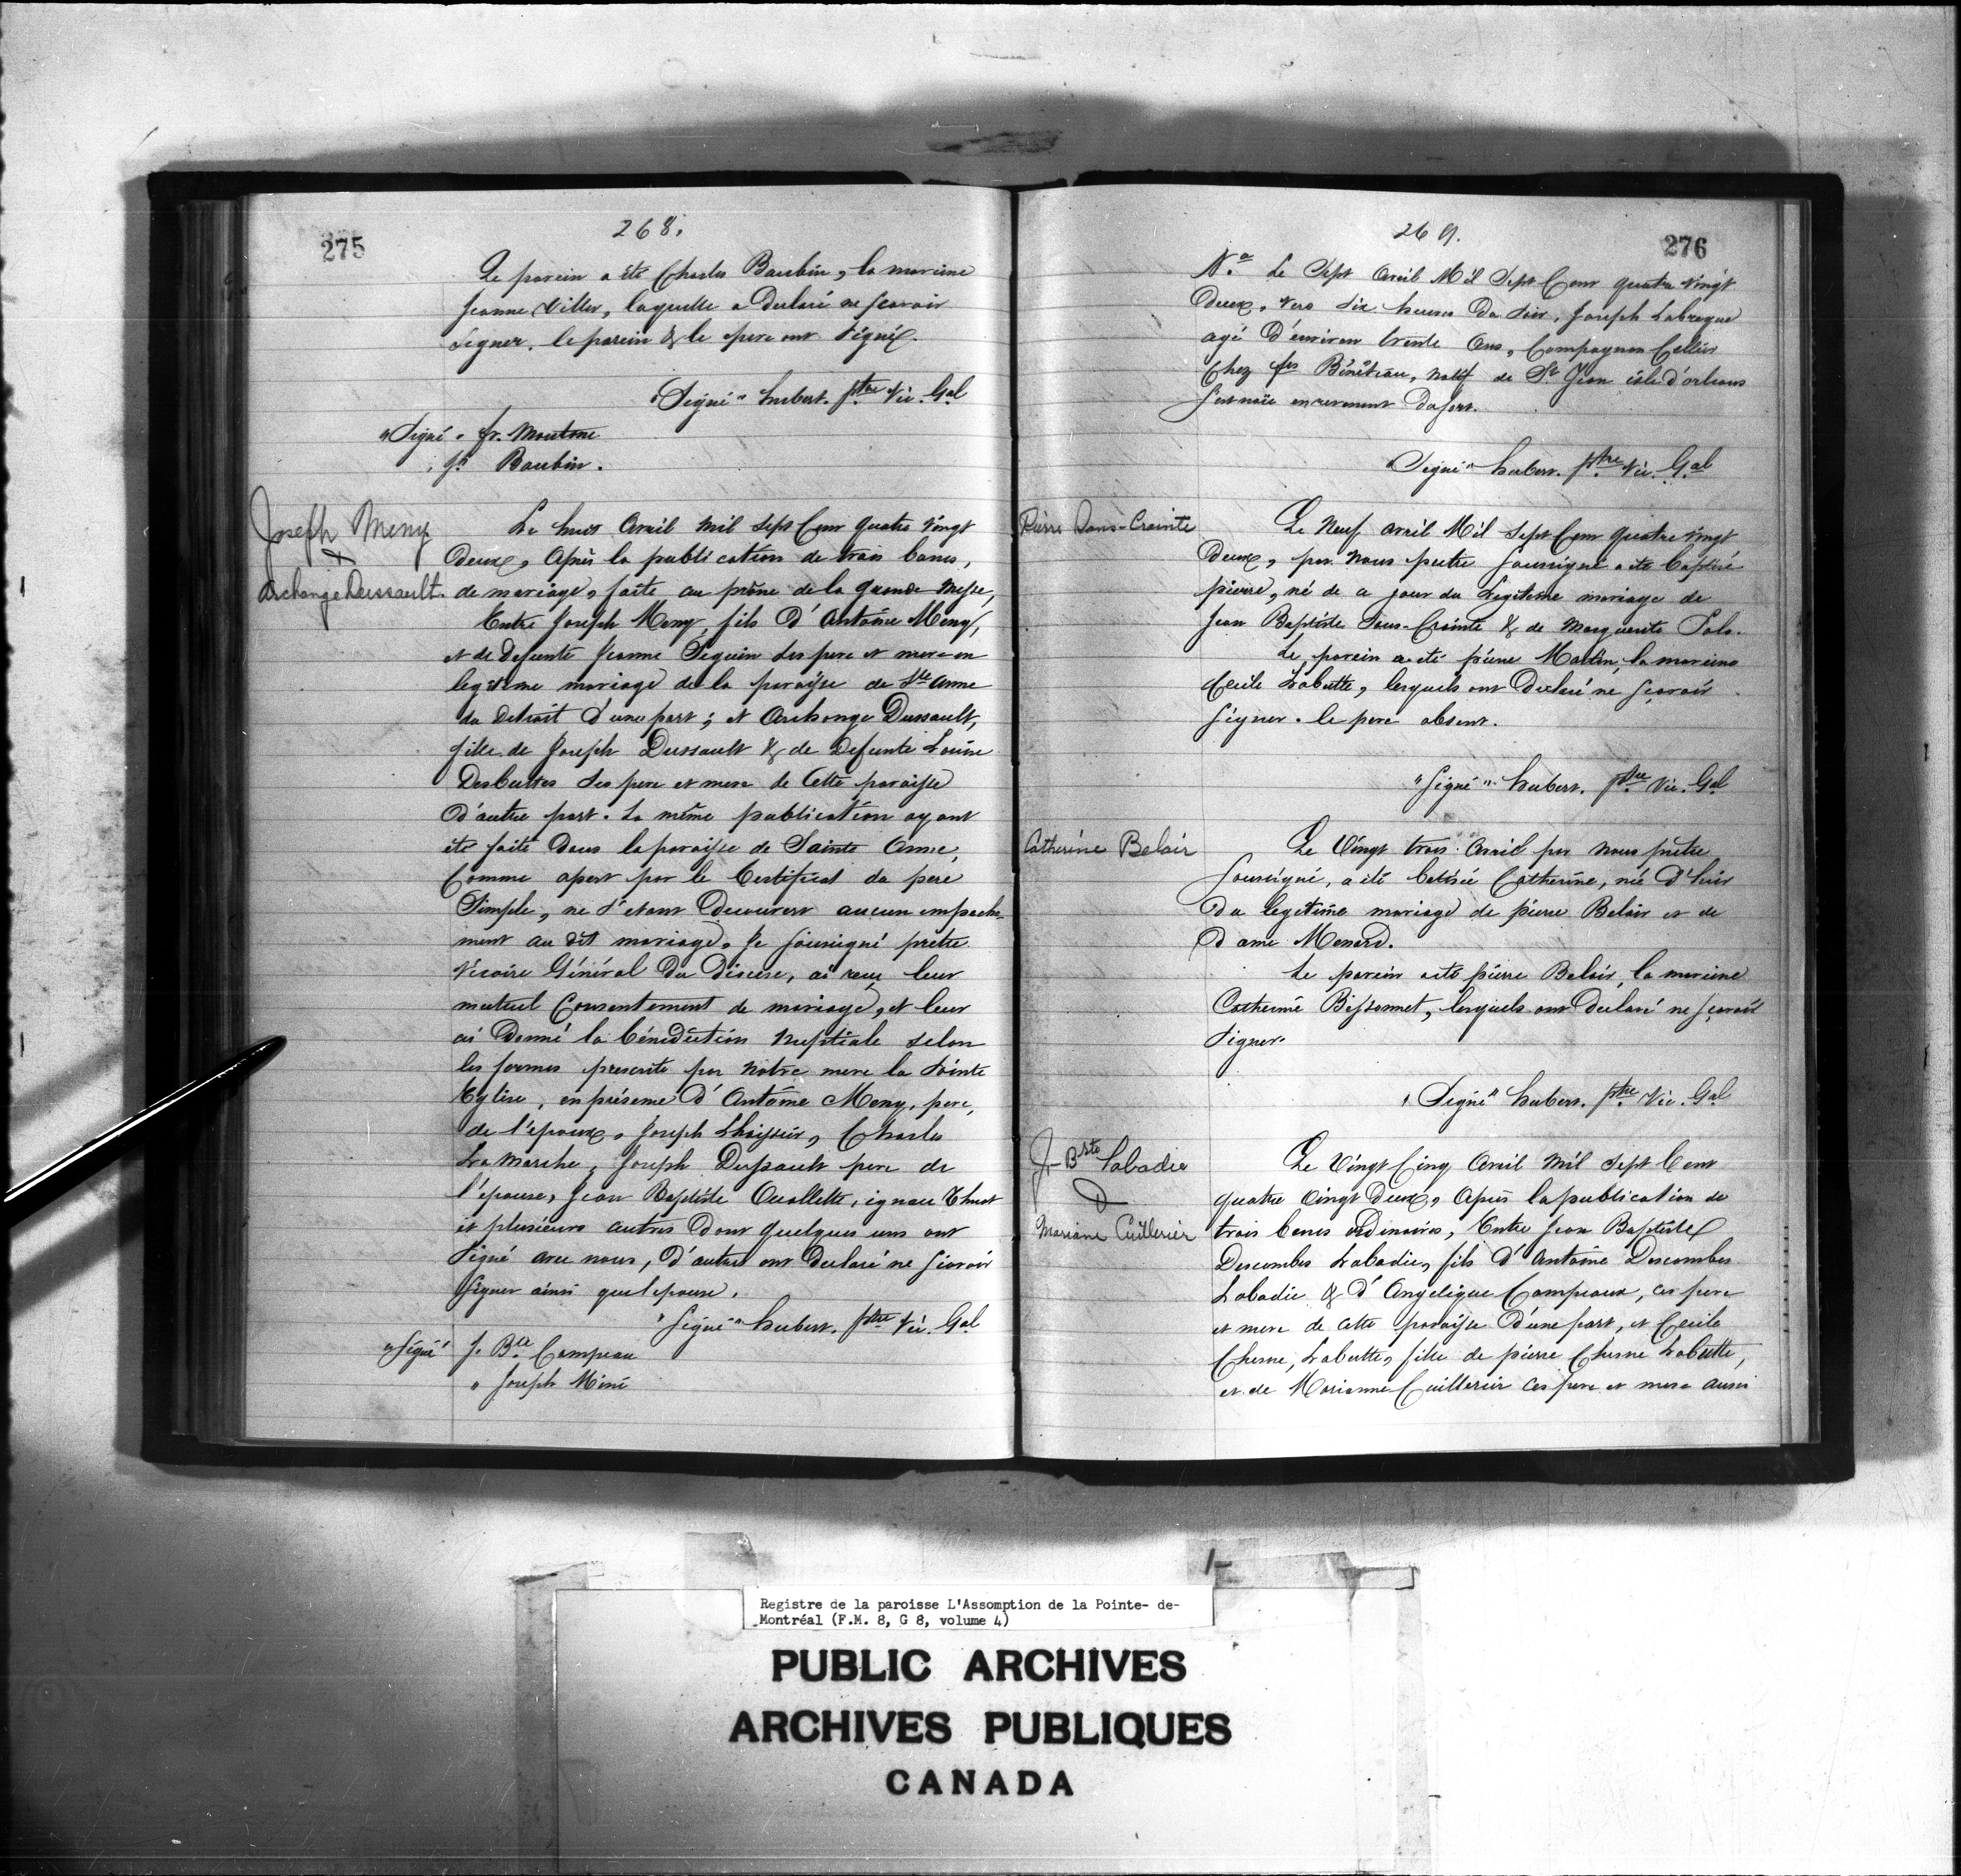 275
268.
Le parein a été Charles Baubin, la mareine
Jeanne Viller, laquelle a Declaré ne scavoir
signer. le parein & le pere ont signé.
"Signé" hubert. ptre Vic. Gal
"Signé" fr. Moutone
Baubin.
Joseph Meny
&
Archange Dussault.
Le huit Avril mil sept Cent quatre vingt
Deux, Après la publication de trois bancs,
de mariage, faite au prône de la grande Messe,
Entre Joseph Meny, fils D'Antoine Meny,
et de Defunte Jeanne Seguin ses pere et mere en
legitime mariage de la paroisse de Ste Anne
du Detroit d'une part; et Archange Dussault,
fille de Joseph Dussault & de Defunte Louise
Desbuttes ses pere et mere de Cette paroisse
D'autre part. La même publication ayant
été faite Dans la paroisse de Sainte Anne,
Comme apert par le Certificat du pere
Simple, ne s'etant Decouvert aucun empeche-
ment au dit mariage, Je soussigné pretre
Vicaire Général Du Diocese, ai reçu leur
mutuel Consentement de mariage, et leur
ai Donné la bénédiction nuptiale selon
les formes prescrite par Notre mere la Sainte
Eglise, en présence D'Antoine Meny, pere,
de l'epoux, Joseph L'hoissir, Charles
La Marche, Joseph Dussault pere de
l'épouse, Jean Baptiste Ouallette, ignace Thuot
et plusieurs autres Dont quelques uns ont
signé avec nous, D'autres ont Declaré ne scavoir
signer ainsi que l'epouse.
"Signé" hubert. ptre Vic. Gal
"Signé" J. Bte Campeau
" Joseph Mini
269.
276
Le Sept Avril Mil Sept Cent quatre vingt
Deux, vers dix heures Du Soir, Joseph Labreque
agé D'environ trente Ans, Compagnon Cellier
Chez Bénéteau, natif de St Jean isle d'orleans
s'est noïe en revenant Du fort.
"Signé" hubert. ptre Vic. Gal
Pierre Sans-Crainte
Le Neuf avril Mil Sept Cent quatre vingt
Deux, par Nous pretre Soussigné a été baptisé
pierre, né de ce jour du Legitime mariage de
Jean Baptiste Sans-Crainte & de Marguerite Solo.
Le parein a été pierre Martin, la mareine
Cecile Labutte, lesquels ont Declaré ne sçavoir
signer. le pere absent.
"Signé" hubert. ptre Vic. Gal
Catherine Belair
Le Vingt trois Avril par nous prêtre
soussigné, a été batisée Catherine, née D'hier
Du legitime mariage de pierre Belair et de
Dame Menard.
Le parein a été pierre Belair, la mareine
Catherine Bissonnet, lesquels ont Declaré ne sçavoir
signer.
"Signé" hubert. ptre Vic. Gal
J-Bste Labadie
&
Mariane Cuillerier
Le Vingt Cinq Avril Mil Sept Cent
quatre Vingt Deux, Après la publication de
trois bancs ordinaires, Entre Jean Baptiste
Descombes Labadie, fils D'Antoine Descombes
Labadie & d'Angelique Campeaux, ces pere
et mere de cette paroisse D'une part, et Cecile
Chesne, Labutte, fille de pierre Chesne Labutte,
et de Marianne Cuillerier ces pere et mere aussi
Registre de la paroisse L'Assomption de la Pointe- de-
Montréal (F.M. 8, G 8, volume 4)
PUBLIC ARCHIVES
ARCHIVES PUBLIQUES
CANADA